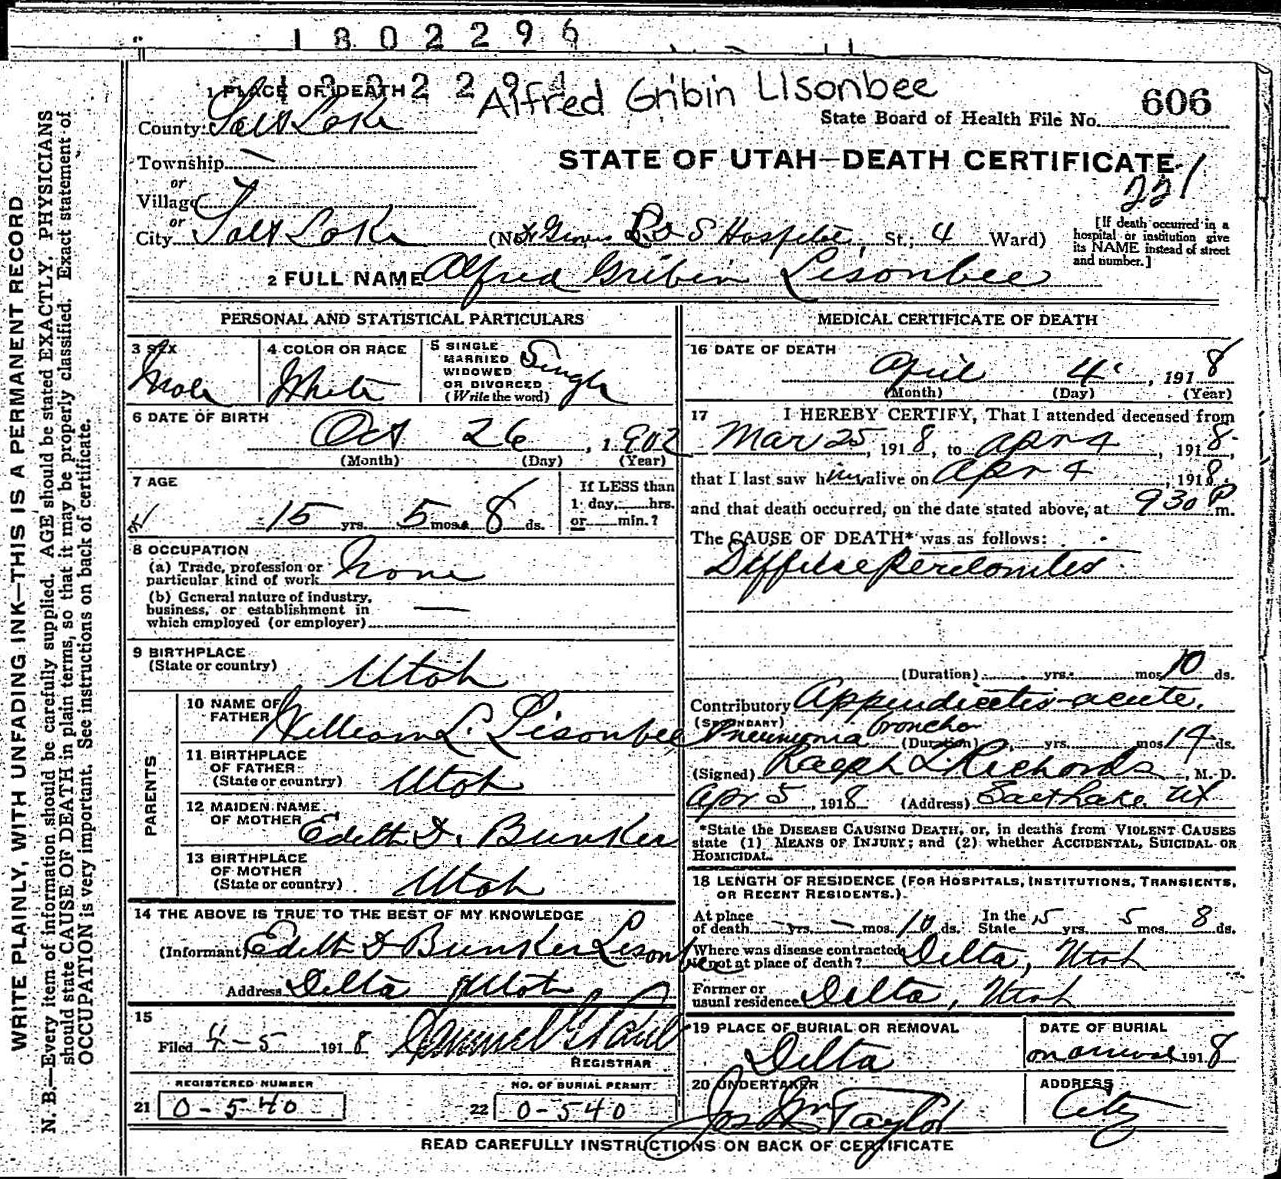 1802296
1802294
Alfred Gribin LIsonbee
1 PLACE OF DEATH
County Salt Lake
State Board of Health File No. 606
Township —
STATE OF UTAH—DEATH CERTIFICATE
221
or
Village
or
City Salt Lake (No. L D S Hospital, St.; 4 Ward)
[If death occurred in a hospital or institution give its NAME instead of street and number.]
2 FULL NAME Alfred Gribin Lisonbee
PERSONAL AND STATISTICAL PARTICULARS
3 SEX
Male
4 COLOR OR RACE
White
5 SINGLE
MARRIED
WIDOWED
OR DIVORCED
(Write the word)
Single
6 DATE OF BIRTH
Oct 26, 1902
(Month) (Day) (Year)
7 AGE
15 yrs. 5 mos. 8 ds.
If LESS than
1 day, hrs.
or min.?
8 OCCUPATION
(a) Trade, profession or
particular kind of work None
(b) General nature of industry,
business, or establishment in
which employed (or employer) —
9 BIRTHPLACE
(State or country) Utah
PARENTS
10 NAME OF
FATHER William L. Lisonbee
11 BIRTHPLACE
OF FATHER
(State or country) Utah
12 MAIDEN NAME
OF MOTHER Edeth D. Bunker
13 BIRTHPLACE
OF MOTHER
(State or country) Utah
14 THE ABOVE IS TRUE TO THE BEST OF MY KNOWLEDGE
(Informant) Edeth D Bunker Lisonbee
Address Delta Utah
15
Filed 4-5 1918
REGISTRAR
REGISTERED NUMBER
21 0-540
NO. OF BURIAL PERMIT
22 0-540
MEDICAL CERTIFICATE OF DEATH
16 DATE OF DEATH
April 4, 1918
(Month) (Day) (Year)
17 I HEREBY CERTIFY, That I attended deceased from
Mar 25, 1918, to Apr 4, 1918,
that I last saw him alive on Apr 4, 1918,
and that death occurred, on the date stated above, at 930 P m.
The CAUSE OF DEATH* was as follows:
Diffuse Peritonitis
(Duration) yrs. mos. 10 ds.
Contributory Appendicitis acute.
(SECONDARY)
Pneumonia broncho (Duration) yrs. mos. 14 ds.
(Signed) Ralph L. Richards, M. D.
Apr 5, 1918 (Address) Salt Lake Ut
*State the DISEASE CAUSING DEATH, or, in deaths from VIOLENT CAUSES
state (1) MEANS OF INJURY; and (2) whether ACCIDENTAL, SUICIDAL OR
HOMICIDAL.
18 LENGTH OF RESIDENCE (FOR HOSPITALS, INSTITUTIONS, TRANSIENTS,
OR RECENT RESIDENTS.)
At place
of death — yrs. — mos. 10 ds.
In the
State 15 yrs. 5 mos. 8 ds.
Where was disease contracted
if not at place of death? Delta, Utah
Former or
usual residence Delta, Utah
19 PLACE OF BURIAL OR REMOVAL
Delta
DATE OF BURIAL
on arrival 1918
20 UNDERTAKER
Jos Wm Taylor
ADDRESS
City
READ CAREFULLY INSTRUCTIONS ON BACK OF CERTIFICATE
WRITE PLAINLY, WITH UNFADING INK—THIS IS A PERMANENT RECORD
N. B.—Every item of information should be carefully supplied. AGE should be stated EXACTLY. PHYSICIANS
should state CAUSE OF DEATH in plain terms, so that it may be properly classified. Exact statement of
OCCUPATION is very important. See instructions on back of certificate.